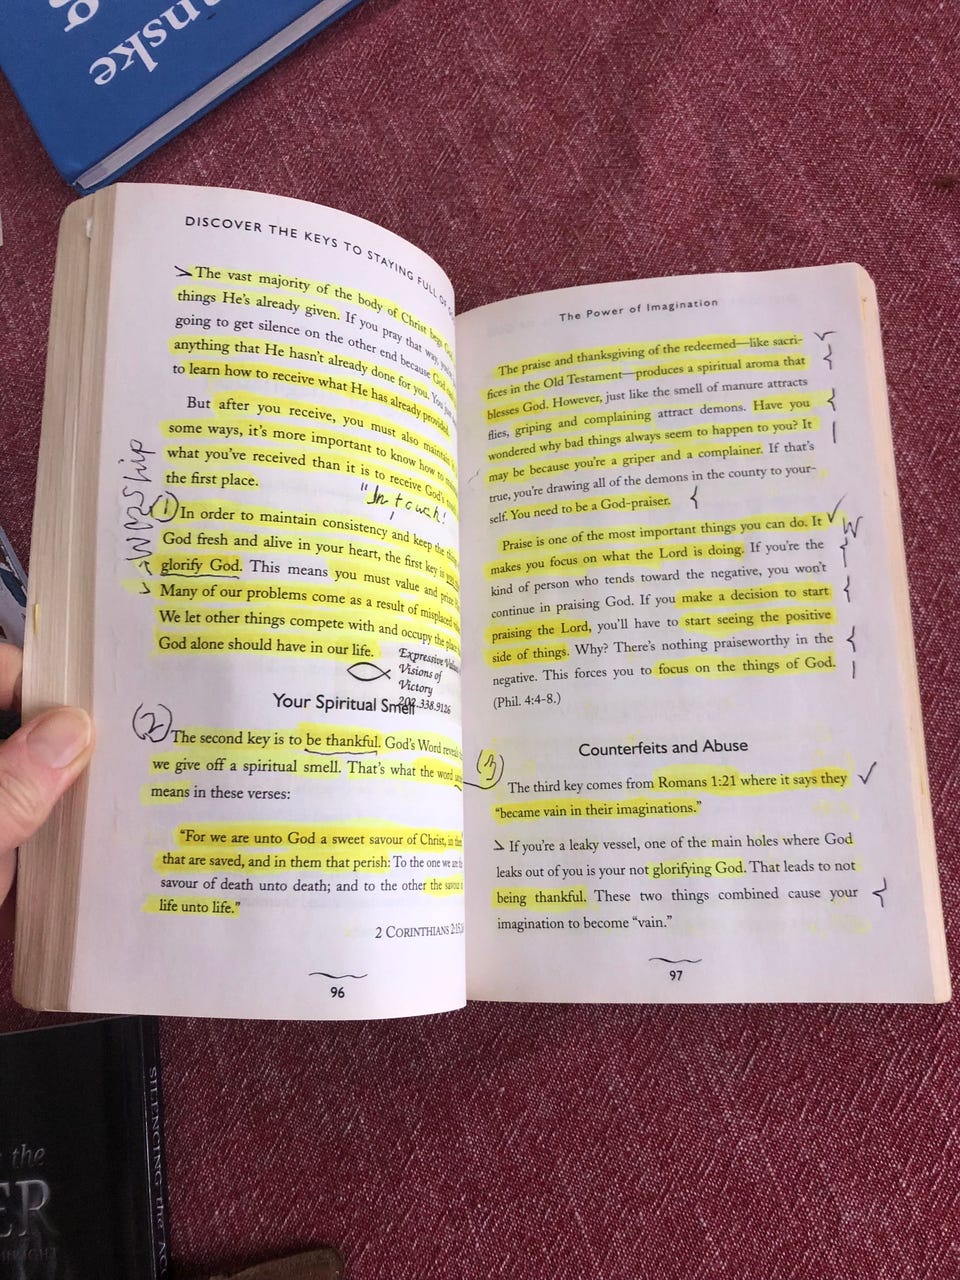 anske
g
DISCOVER THE KEYS TO STAYING FULL OF
The vast majority of the body of Christ begs
things He's already given. If you pray that way, you're
going to get silence on the other end because God
anything that He hasn't already done for you. You
to learn how to receive what He has already provided.
But after you receive, you must also maintain
some ways, it's more important to know how to
what you've received than it is to receive God's
the first place.
"In touch!
WORShip
1 In order to maintain consistency and keep the
God fresh and alive in your heart, the first key is
glorify God. This means you must value and prize
Many of our problems come as a result of misplaced
We let other things compete with and occupy the place
God alone should have in our life.
Expressive
Visions of
Victory
202.338.9126
Your Spiritual Smell
2 The second key is to be thankful. God's Word reveals
we give off a spiritual smell. That's what the word
means in these verses:
"For we are unto God a sweet savour of Christ, in them
that are saved, and in them that perish: To the one we are the
savour of death unto death; and to the other the savour
life unto life."
2 CORINTHIANS 2:15,16
96
The Power of Imagination
The praise and thanksgiving of the redeemed—like sacri-
fices in the Old Testament—produces a spiritual aroma that
blesses God. However, just like the smell of manure attracts
flies, griping and complaining attract demons. Have you
wondered why bad things always seem to happen to you? It
may be because you're a griper and a complainer. If that's
true, you're drawing all of the demons in the county to your-
self. You need to be a God-praiser.
Praise is one of the most important things you can do. It
W
makes you focus on what the Lord is doing. If you're the
kind of person who tends toward the negative, you won't
continue in praising God. If you make a decision to start
praising the Lord, you'll have to start seeing the positive
side of things. Why? There's nothing praiseworthy in the
negative. This forces you to focus on the things of God.
(Phil. 4:4-8.)
Counterfeits and Abuse
3 The third key comes from Romans 1:21 where it says they
"became vain in their imaginations."
If you're a leaky vessel, one of the main holes where God
leaks out of you is your not glorifying God. That leads to not
being thankful. These two things combined cause your
imagination to become "vain."
97
SILENCING the AC
the
ER